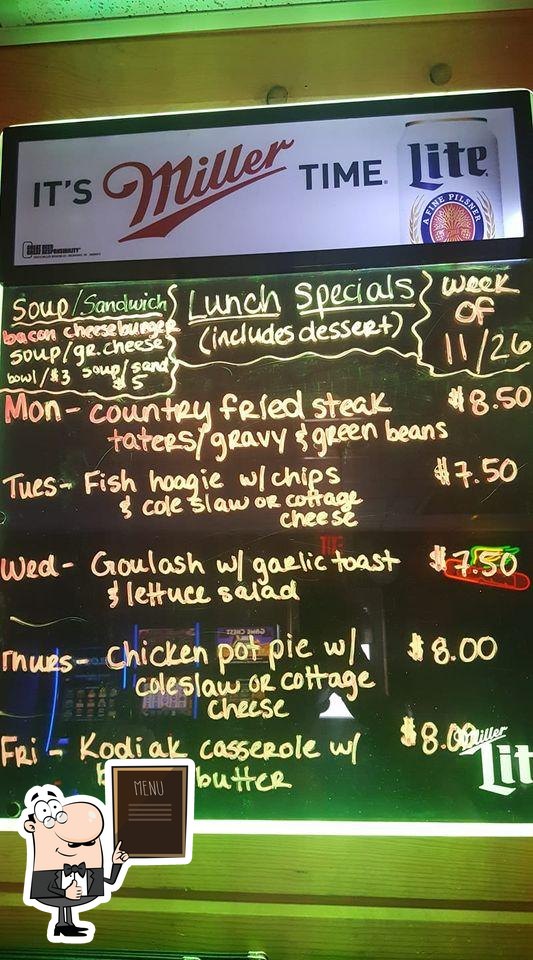 IT'S Miller TIME.
Lite
A FINE PILSNER
GREAT BEER
GREAT RESPONSIBILITY
Soup/Sandwich
bacon cheeseburger
soup/gr.cheese
bowl/$3 soup/sand
$5
Lunch Specials
(includes dessert)
week
OF
11/26
Mon- country fried steak $8.50
taters/gravy & green beans
Tues- Fish hoagie w/chips $7.50
& cole slaw or cottage
cheese
Wed- Goulash w/garlic toast $7.50
& lettuce salad
Thues- chicken pot pie w/ $8.00
coleslaw or cottage
cheese
Fri- Kodiak casserole w/ $8.00
butter
Miller
Lit
MENU